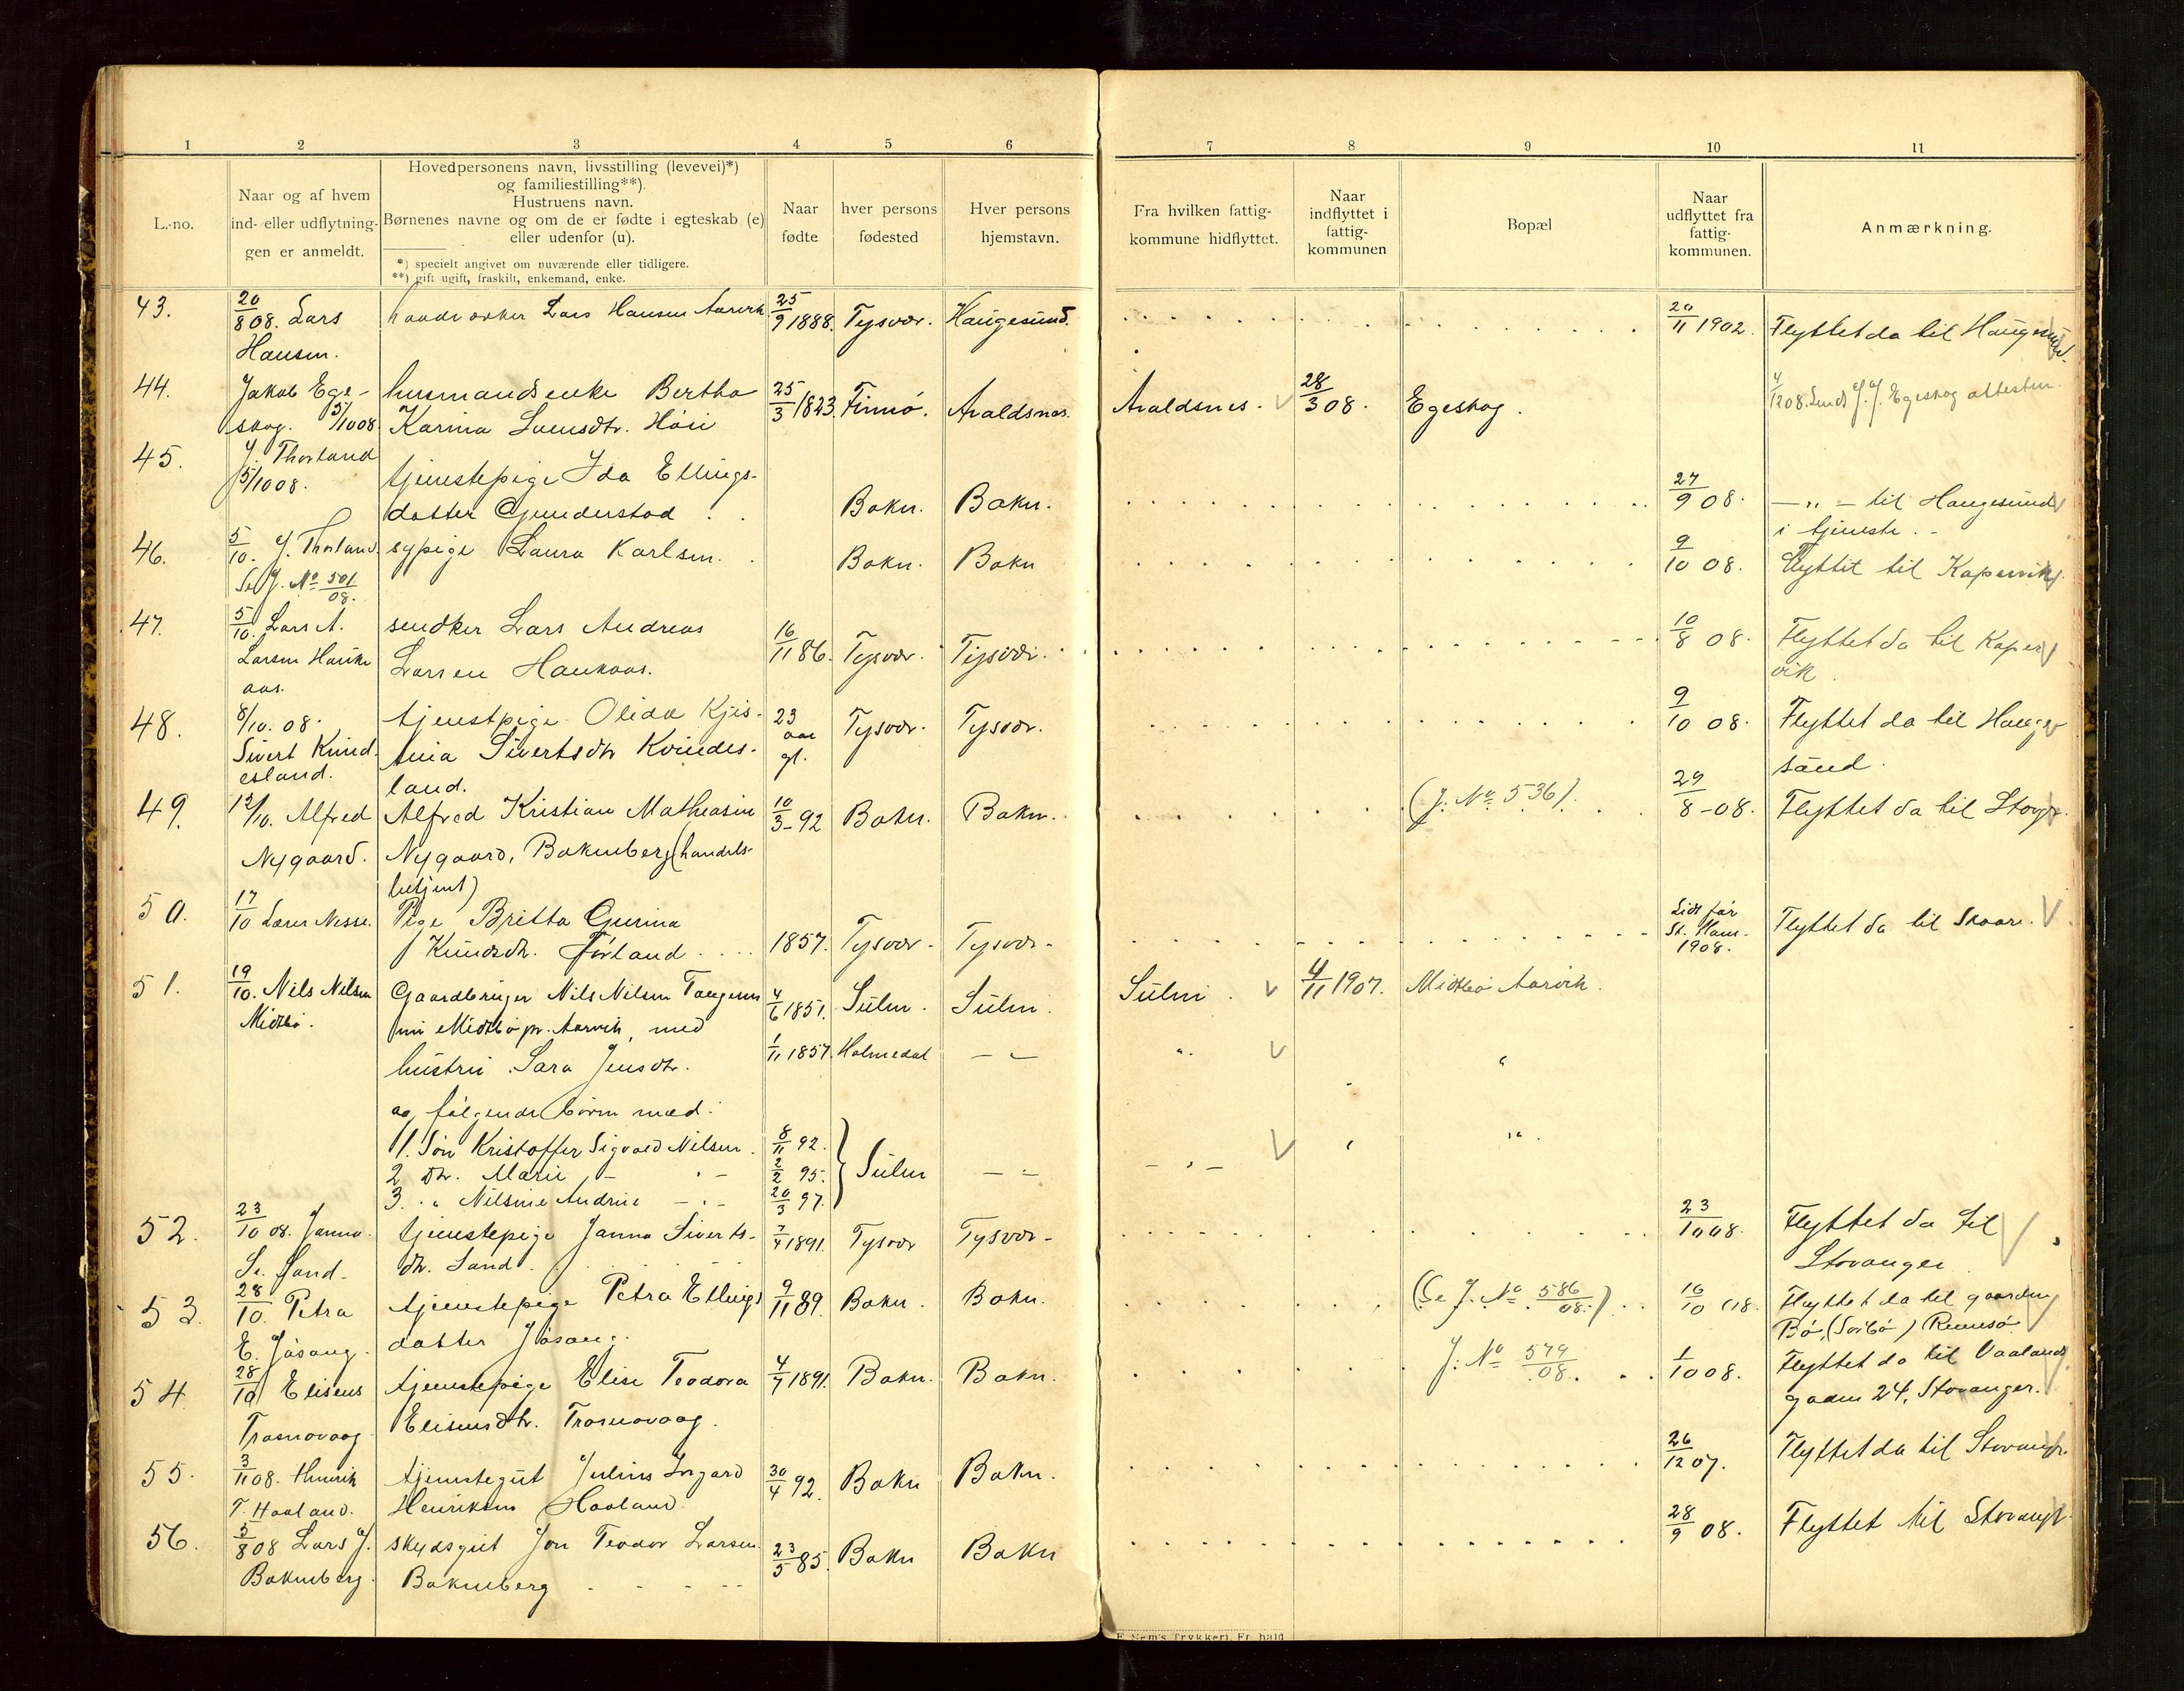 1 2 3 4 5 6 7 8 9 10 11
L.-no.
Naar og af hvem
ind- eller udflytnin-
gen er anmeldt.
Hovedpersonens navn, livsstilling (levevei)*)
og familiestilling**).
Hustruens navn.
Børnenes navne og om de er fødte i egteskab (e)
eller udenfor (u).
*) specielt angivet om nuværende eller tidligere.
**) gift ugift, fraskilt, enkemand, enke.
Naar
fødte
hver persons
fødested
Hver persons
hjemstavn.
Fra hvilken fattig-
kommune hidflyttet.
Naar
indflyttet i
fattig-
kommunen
Bopæl
Naar
udflyttet fra
fattig-
kommunen.
Anmærkning.
43. 20/8 08. Lars Lars Hansen 25/9 1888. Tysvær. Haugesund. 20/11 1902. Flyttet da til Haugesund.
Hansen.
44. Jakob Ege- husmandsenke Bertha 25/3 1823. Finnø. Avaldsnes. Avaldsnes. 28/3 08. Egeskog. 4/12 08. Sendt J. J. Egeskog attesten.
skog. 5/10 08 Karina Svensdtr. Höie
45. J. Thorland tjenstepige Ida Ellings-
5/10 08. datter Gunderstad Bokn. Bokn. 27/9 08. — " — til Haugesund
i tjeneste. -
46. 5/10. J. Thorland. sypige Laura Karlsen. Bokn. Bokn 9/10 08. Flyttet til Kopervik.
Se J. No 501/08.
47. 5/10. Lars A. Lars Andreas 16/11 86. Tysvær. Tysvær. 10/8 08. Flyttet da til Koper
Larsen Hauke Larsen Haukaas. vik.
aas.
48. 8/10. 08. tjenstpige Olida Kjis- 23 Tysvær. Tysvær. 9/10 08. Flyttet da til Hauge
Sivert Kvind tina Sivertsdtr Kvindes- aar sund.
esland. land. gl.
49. 12/10. Alfred Alfred Kristian Matheasen 10/3-92 Bokn. Bokn. (J. No 536). 29/8-08. Flyttet da til Stavgr.
Nygaard. Nygaard, Boknberg (handels-
betjent)
50. 17/10 Lærer Nesse. Pige Britta Gurina 1857. Tysvær- Tysvær- Lidt før Flyttet da til Skaare.
Knudsdtr. Førland St. Hans-
1908.
51. 19/10. Nils Nilsen Gaardbruger Nils Nilsen Tangenes 4/6 1851. Sulen. Sulen. Sulen. 4/11 1907. Midtbø Aarvik.
Midtbø. nu Midtbø pr. Aarvik, med
hustru Sara Jensdtr. 1/11 1857. Holmedal — " — " "
og følgende børn med:
1. Søn Kristoffer Sigvald Nilsen. 8/11 92. Sulen — " — — " — " "
2. dtr. Marie — " — 2/2 95.
3. " Nilsine Andrine — " — 20/3 97.
52. 23/10 08. Janna tjenestepige Janna Siverts- 7/4 1891. Tysvær Tysvær- 23/10 08. Flyttet da til
S. Sand- dtr. Sand. Stavanger
53. 28/10. Petra tjenstepige Petra Ellings 9/11 89. Bokn. Bokn. (Se J. No 586/08.) 16/10 08. Flyttet da til gaarden
E. Jøsang. datter Jøsang. Bø, (Sørbø) Rennesø
54. 28/10 Eliseus tjenstepige Elise Teodora 4/7 1891. Bokn. Bokn. J. No 579/08. 1/10 08. Flyttet da til Vaalands
Trosnavaag Eliseusdtr. Trosnavaag. gaden 24, Stavanger.
55. 3/11 08. Henrik tjenstegut Julius Ingvard 30/4 92. Bokn Bokn. 26/12 07. Flyttet da til Stavangr.
T. Haaland. Henriksen Haaland
56. 5/8 08 Lars J. skydsgut Jon Teodor Larsen 23/5 85. Bokn Bokn 28/9 08. Flyttet til Stavangr.
Boknberg. Boknberg